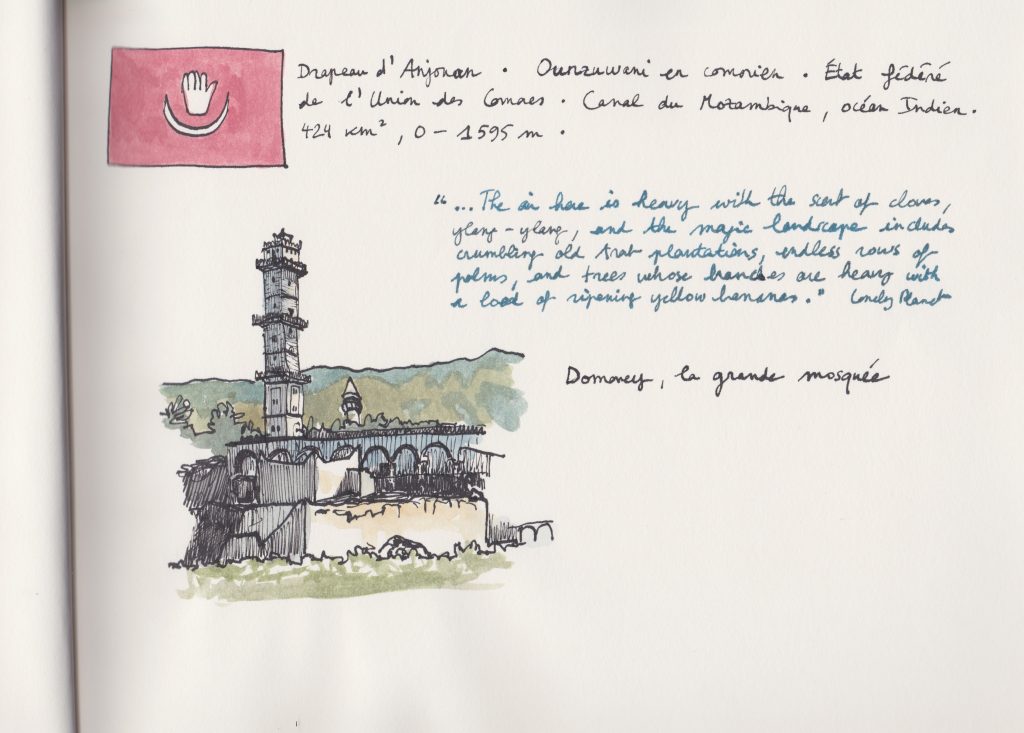 Drapeau d'Anjouan . Ounzuwani en comorien . État fédéré
de l'Union des Comores . Canal du Mozambique, océan Indien.
424 km², 0 - 1595 m .
"...The air here is heavy with the scent of cloves,
ylang-ylang, and the magic landscape includes
crumbling old Arab plantations, endless rows of
palms, and trees whose branches are heavy with
a load of ripening yellow bananas." Lonely Planet
Domoney, la grande mosquée